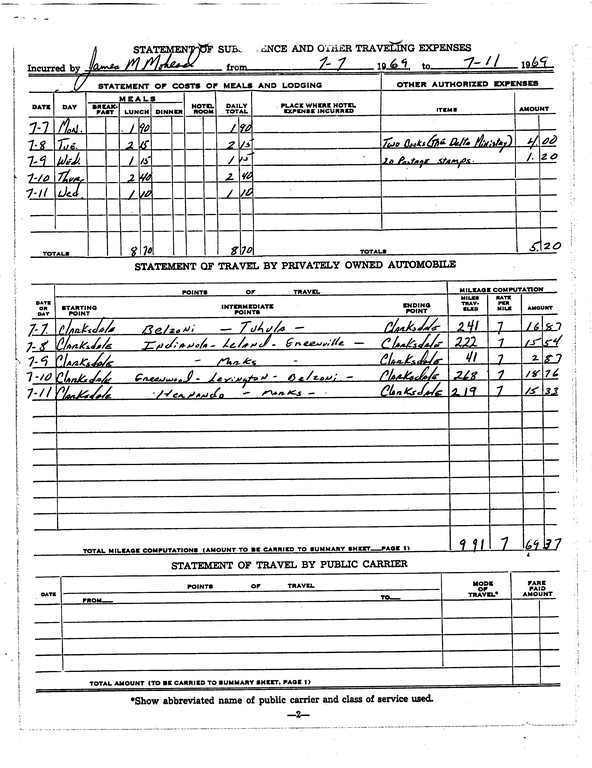 STATEMENT OF SUB ENCE AND OTHER TRAVELING EXPENSES
Incurred by James M Mohead from 7-7 1969 to 7-11 1969
STATEMENT OF COSTS OF MEALS AND LODGING OTHER AUTHORIZED EXPENSES
MEALS
DATE DAY BREAK-FAST LUNCH DINNER HOTEL ROOM DAILY TOTAL PLACE WHERE HOTEL EXPENSE INCURRED ITEMS AMOUNT
7-7 Mon. 1 90 1 90
7-8 Tue. 2 15 2 15 Two Books (The Delta Ministry) 4 00
7-9 Wed. 1 15 1 15 20 Postage stamps. 1. 20
7-10 Thur. 2 40 2 40
7-11 Wed 1 10 1 10
TOTALS 8 70 8 70 TOTALS 5 20
STATEMENT OF TRAVEL BY PRIVATELY OWNED AUTOMOBILE
POINTS OF TRAVEL MILEAGE COMPUTATION
DATE OR DAY STARTING POINT INTERMEDIATE POINTS ENDING POINT MILES TRAV-ELED RATE PER MILE AMOUNT
7-7 Clarksdale Belzoni - Tchula - Clarksdale 241 7 16 87
7-8 Clarksdale Indianola - Leland - Greenville - Clarksdale 222 7 15 54
7-9 Clarksdale - Marks - Clarksdale 41 7 2 87
7-10 Clarksdale Greenwood - Lexington - Belzoni - Clarksdale 268 7 18 76
7-11 Clarksdale Hernando - Marks - Clarksdale 219 7 15 33
TOTAL MILEAGE COMPUTATIONS (AMOUNT TO BE CARRIED TO SUMMARY SHEET—PAGE 1) 991 7 69 37
STATEMENT OF TRAVEL BY PUBLIC CARRIER
DATE POINTS OF TRAVEL MODE OF TRAVEL* FARE PAID AMOUNT
FROM— TO—
TOTAL AMOUNT (TO BE CARRIED TO SUMMARY SHEET, PAGE 1)
*Show abbreviated name of public carrier and class of service used.
—2—